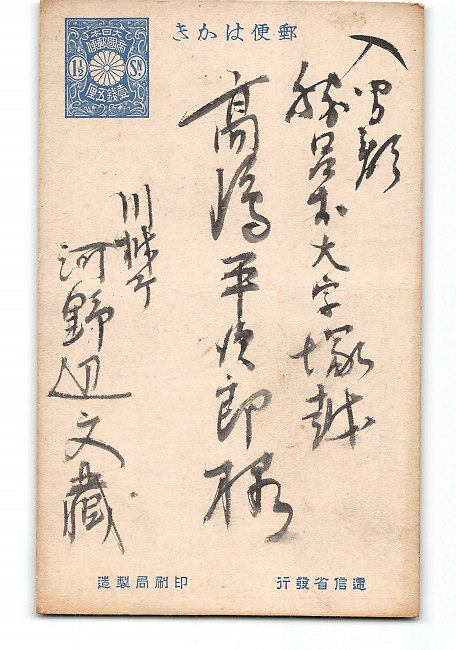 郵便はかき
大日本
帝國郵便
1½ Sn
壹錢五厘
入間郡
勝呂村大字塚越
高嶋平次郎様
河野辺文藏
遞信省發行
印刷局製造